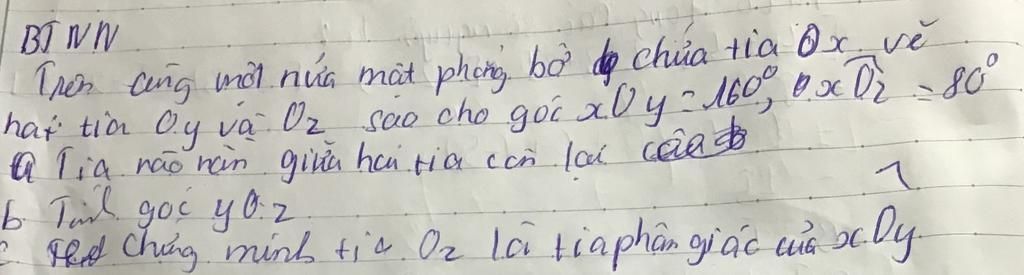 BTNN
Trên cùng một nửa mặt phẳng bờ chứa tia Ox vẽ
hai tia Oy và Oz sao cho góc xOy = 160°, xOz = 80°
a Tia nào nằm giữa hai tia còn lại
b Tính góc yOz
c chứng minh tia Oz là tia phân giác của xOy